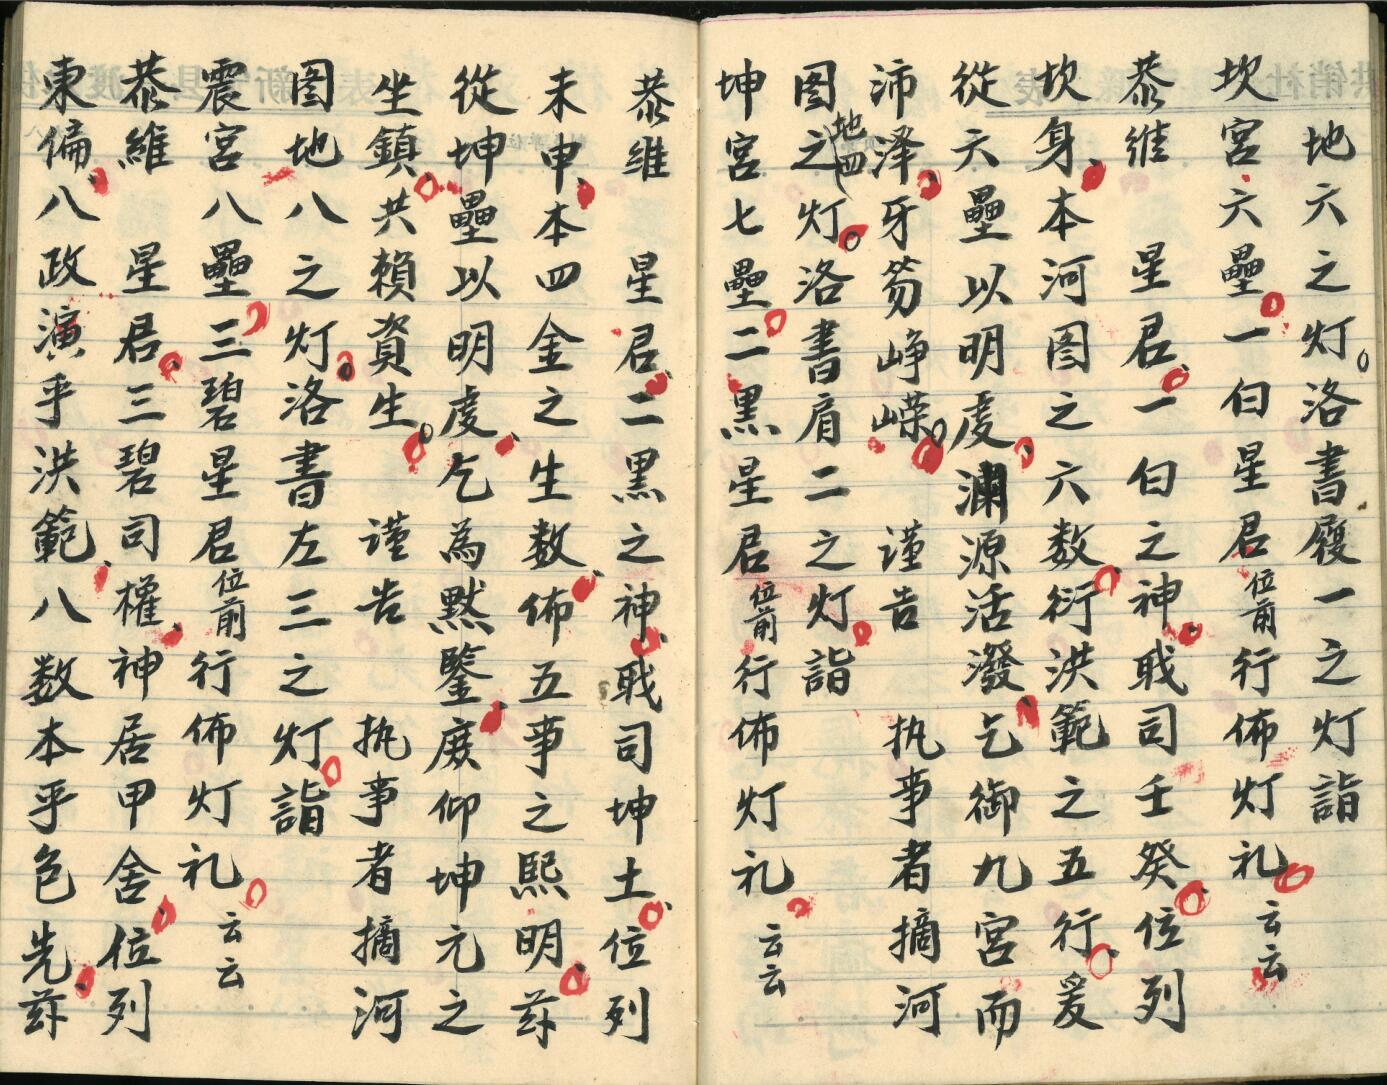 地六之灯洛書履一之灯詣
坎宮六壘一白星君位前行佈灯礼云云
恭維 星君一白之神戢司壬癸位列
坎身本河图之六数衍洪範之五行爰
從六壘以明虔澜源活潑乞御九宮而
沛泽牙笏崢嶸 谨告 执事者摘河
图之地四灯洛書肩二之灯詣
坤宮七壘二黑星君位前行佈灯礼云云
恭维 星君二黑之神戢司坤土位列
未申本四金之生数佈五事之熙明茲
從坤壘以明虔乞為默鑒庶仰坤元之
坐鎮共賴資生 谨告 执事者摘河
图地八之灯洛書左三之灯詣
震宮八壘三碧星君位前行佈灯礼云云
恭維 星君三碧司權神居甲舍位列
東偏八政演乎洪範八数本乎色先茲